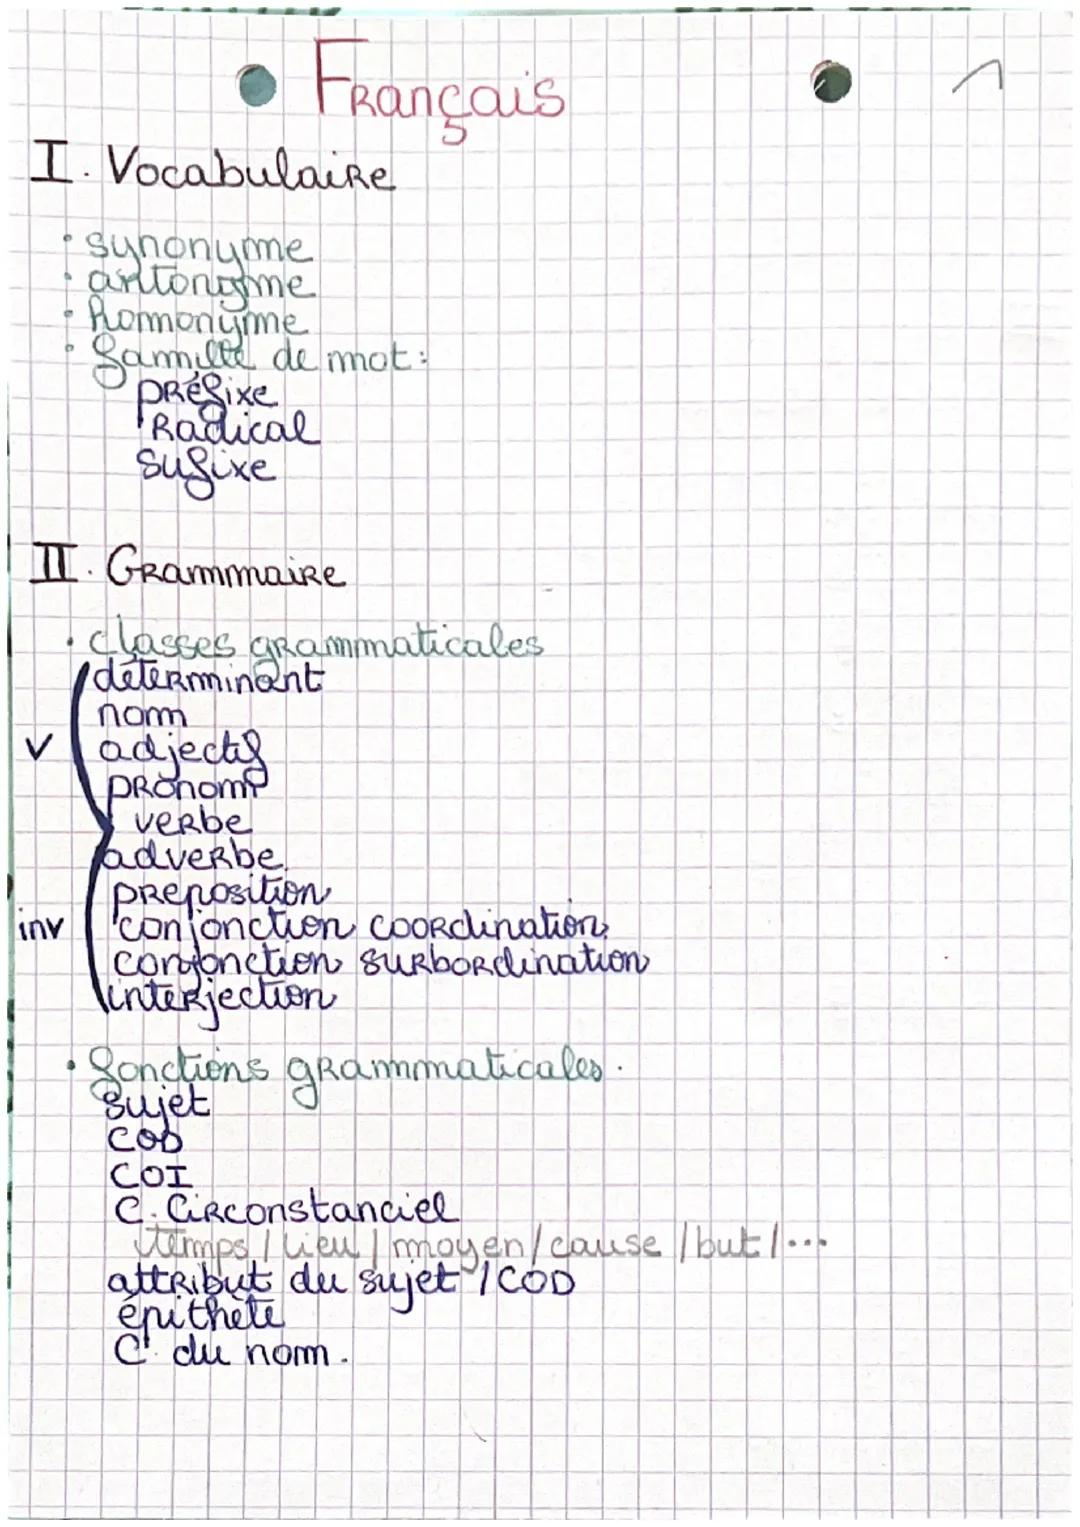 Français
1
I. Vocabulaire
• synonyme
• antonyme
• homonyme
• famille de mot :
préfixe
Radical
sufixe
II. Grammaire
• classes grammaticales
déterminant
nom
v
adjectif
pronom
verbe
adverbe
preposition
inv
conjonction coordination
conjonction surbordination
interjection
• fonctions grammaticales.
sujet
COD
COI
C. Circonstanciel
temps / lieu / moyen / cause / but / ...
attribut du sujet / COD
épithète
C. du nom.